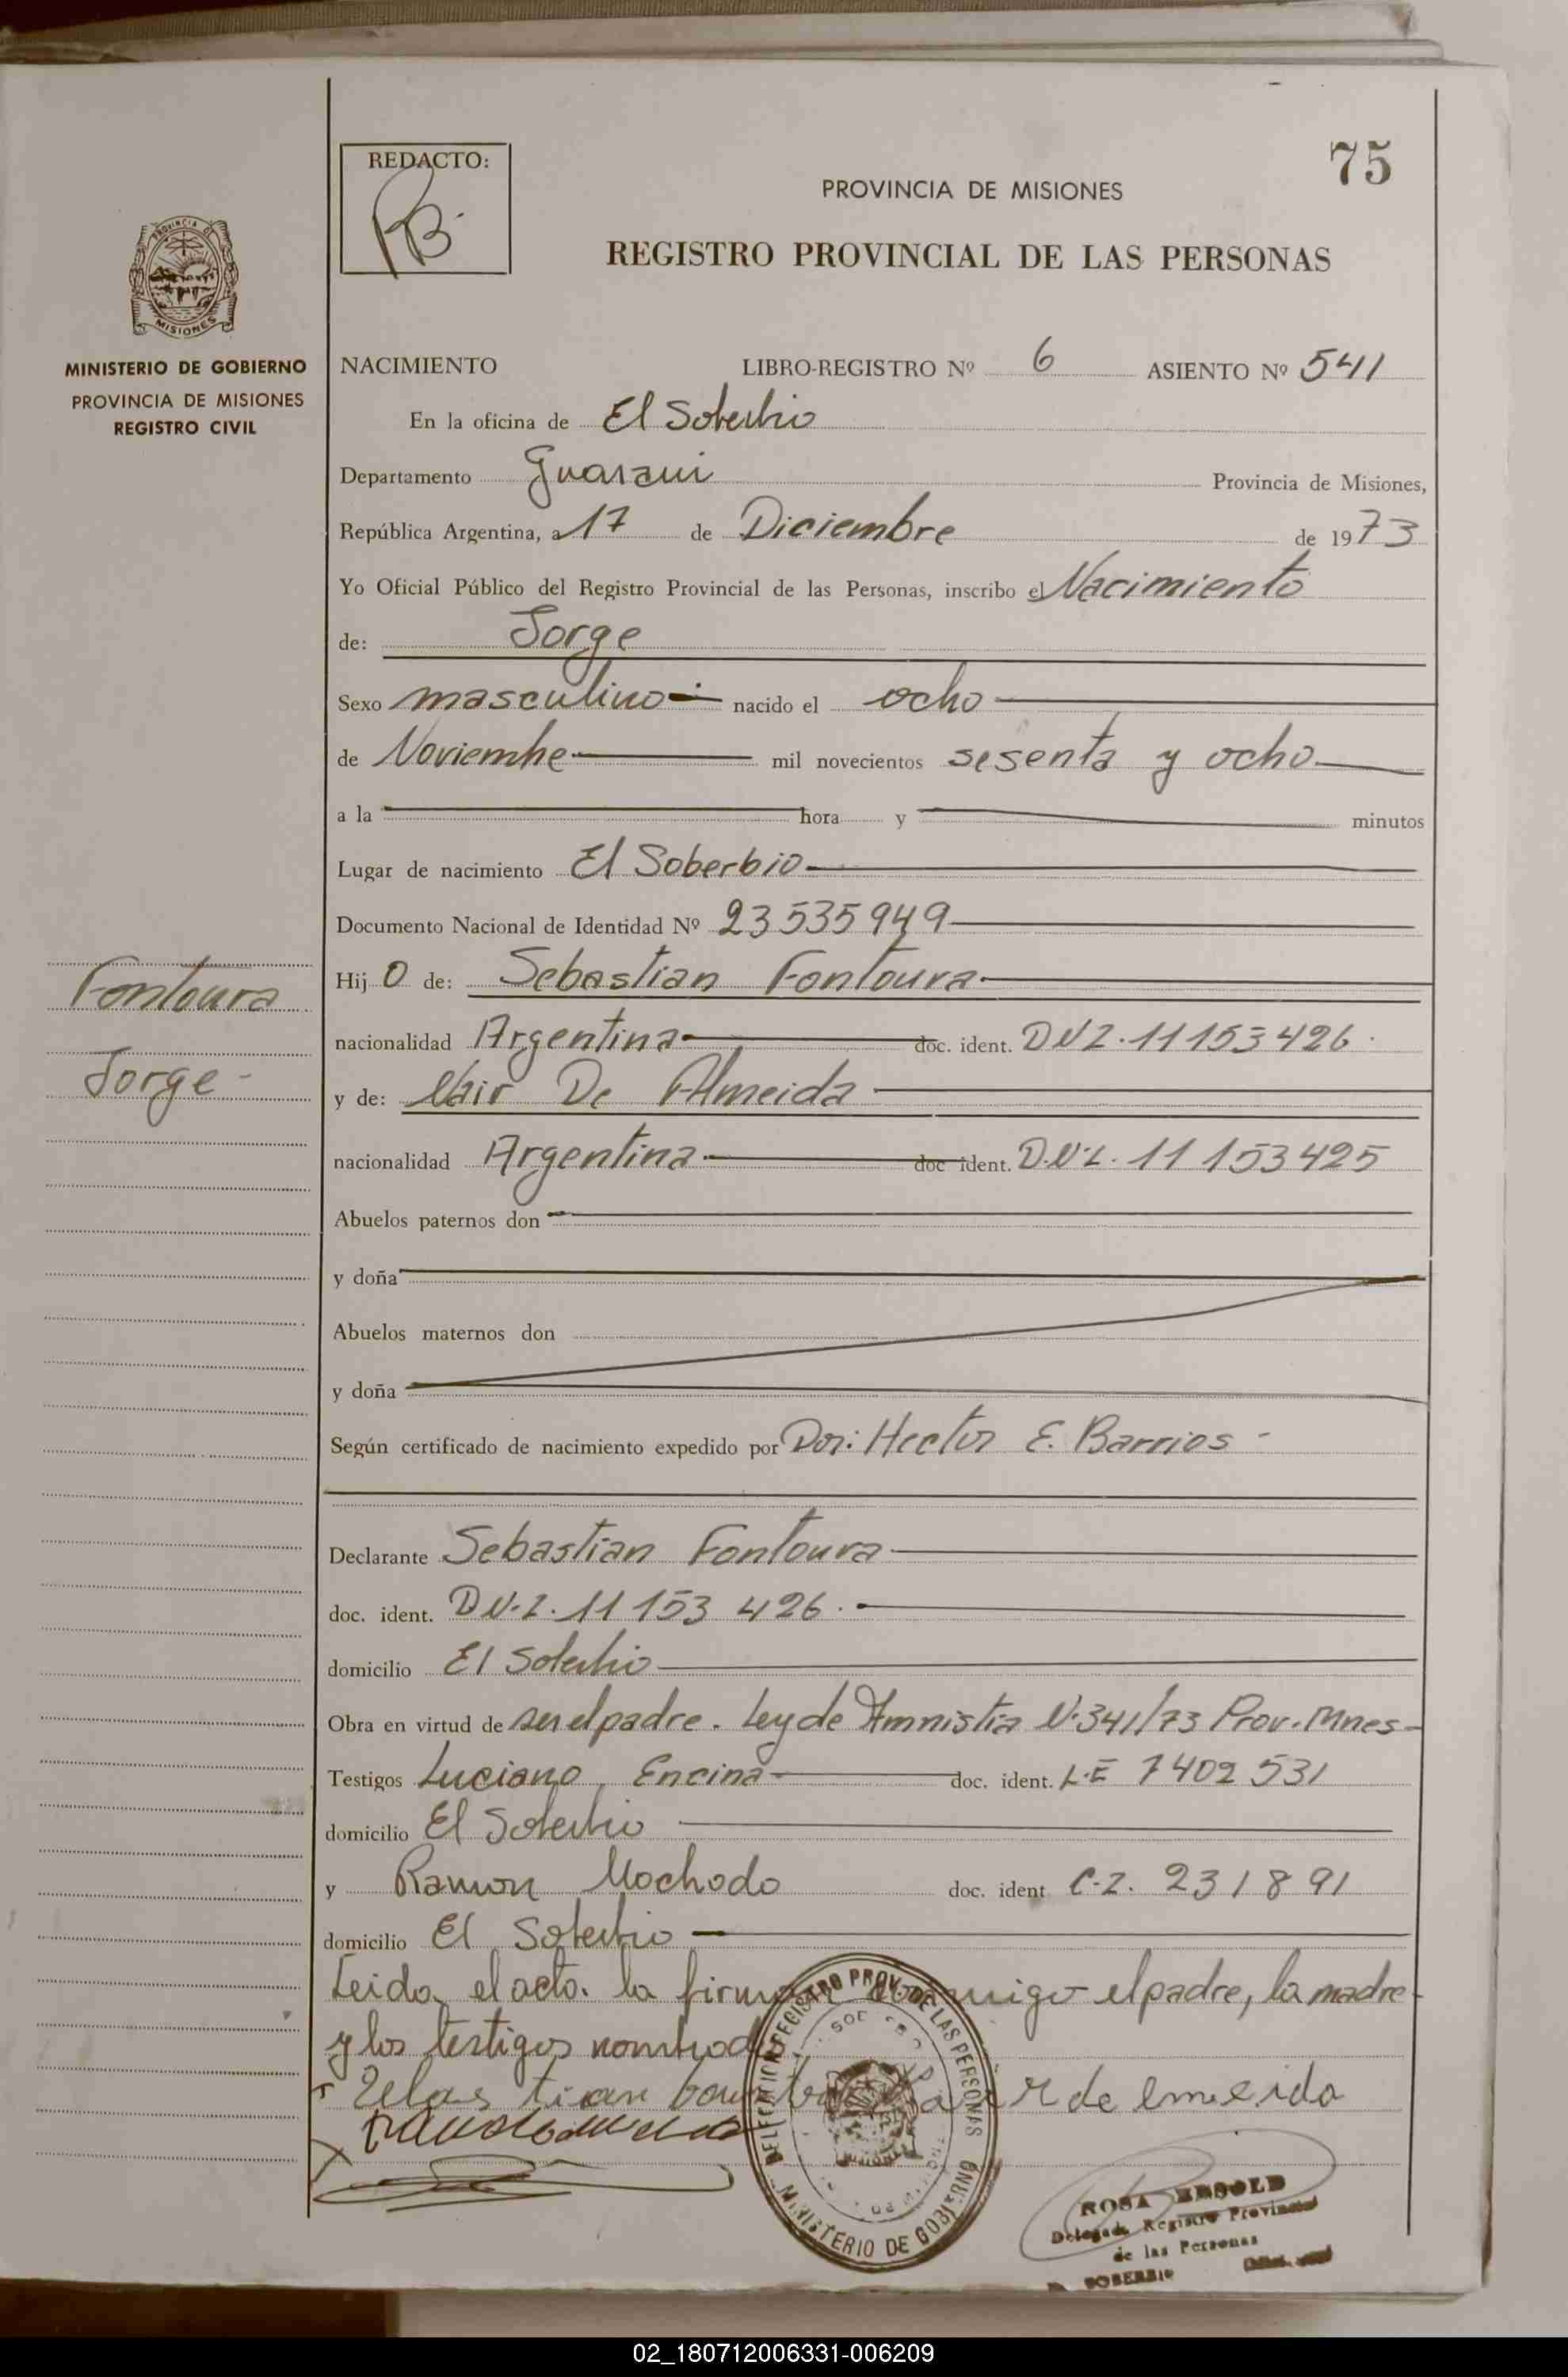 75
REDACTO:
RB
PROVINCIA DE MISIONES
REGISTRO PROVINCIAL DE LAS PERSONAS
PROVINCIA DE
MISIONES
MINISTERIO DE GOBIERNO
PROVINCIA DE MISIONES
REGISTRO CIVIL
NACIMIENTO LIBRO-REGISTRO Nº 6 ASIENTO Nº 541
En la oficina de El Soberbio
Departamento Guarani Provincia de Misiones,
República Argentina, a 17 de Diciembre de 1973
Yo Oficial Público del Registro Provincial de las Personas, inscribo el Nacimiento
de: Jorge
Sexo masculino nacido el ocho
de Noviembre mil novecientos sesenta y ocho
a la hora y minutos
Lugar de nacimiento El Soberbio
Documento Nacional de Identidad Nº 23535949
Fontoura
Jorge
Hijo de: Sebastian Fontoura
nacionalidad Argentina doc. ident. DNI. 11153426
y de: Nair De Almeida
nacionalidad Argentina doc ident. D.N.I. 11 153425
Abuelos paternos don
y doña
Abuelos maternos don
y doña
Según certificado de nacimiento expedido por Dor: Hector E. Barrios
Declarante Sebastian Fontoura
doc. ident. DN.I. 11 153 426.
domicilio El Soberbio
Obra en virtud de ser el padre. Ley de Amnistia N.341/73 Prov. Mnes
Testigos Luciano Encina doc. ident. L.E 7402531
domicilio El Soberbio
y Ramon Mochodo doc. ident C.I. 231891
domicilio El Soberbio
Leido el acto. la firman conmigo el padre, la madre
y los testigos nombrados
r de emeida
DELEGACION REGISTRO PROV. DE LAS PERSONAS
MINISTERIO DE GOBIERNO
ROSA
Delegada Registro Provincial
de las Personas
SOBERBIO
02_180712006331-006209